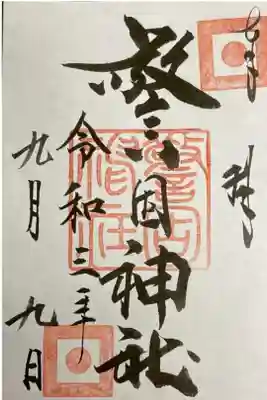 奉拝
警固神社
令和三年
九月九日